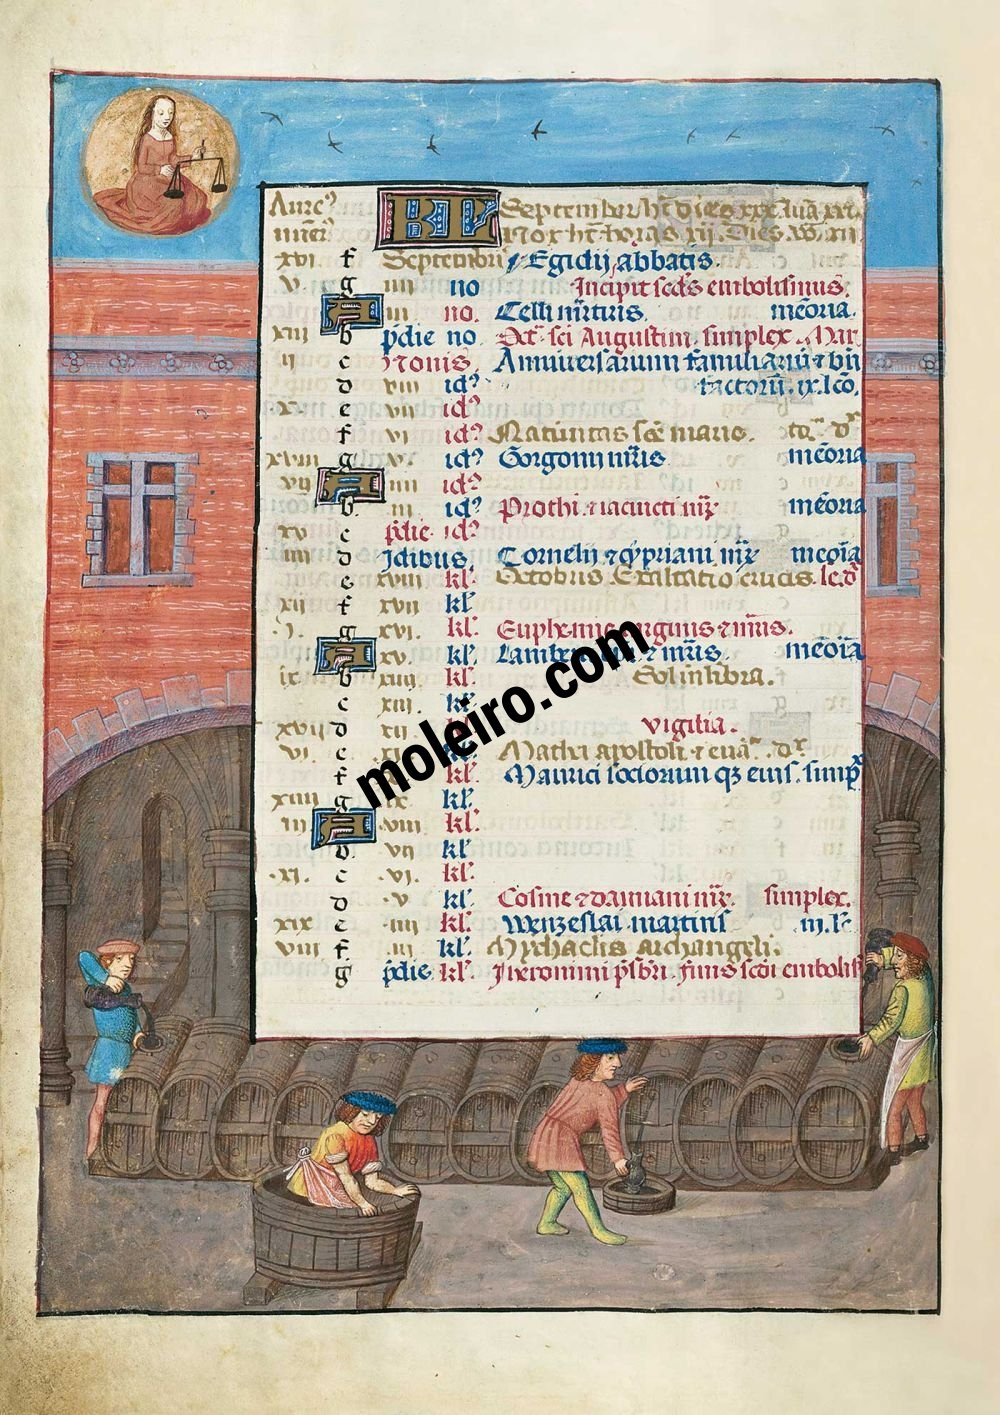 Aureꝰ KL September ht dies xxx luā xxx.
nūer' Nox ht horas xij. Dies vō xij
xvi f Septembris Egidij abbatis.
v g iiii no Incipit sedes embolismus.
A iii no. Celli mrtiris. mēoria.
xiii b pdie no Oct' sci Augustini simplex. Mar
ii c Nonis. Anniversarium familiariū et bn
d viii idꝰ factorū. ix. lcō.
x. e vii idꝰ
f vi idꝰ Nativitas scē marie. dꝝ
xviii g v. idꝰ Gorgonij mris mēoria
vii A iiii idꝰ
b iii idꝰ Prothi et iacincti mr̄ mēoria
xv c pdie idꝰ
iiii d Idibus Cornelij et cypriani mr̄ meoīa
e xviii kl' Octobris. Exaltatio crucis.
xii f xvii kl'
i. g xvi. kl' Eufhemie virginis et mris.
A xv. kl' Lamberti et mris meoīa
ix. b xiiii kl' Sol in libra.
c xiii. kl'
xvii d xii kl' vigilia.
vi. e xi kl' Mathei apostoli et evā.
f kl' Maurici sociorum qꝫ eius. simp
xiiii g ix kl'
iii A viii kl'
b vii kl'
xi. c vi. kl'
d v kl' Cosme et damiani mr̄. simplex.
xix e iiii kl' Wenzeslai martiris m. l'
viii f iii kl' Mychaelis archangeli.
g pdie kl' Jheronimi psbri. finis scdi embolis
moleiro.com